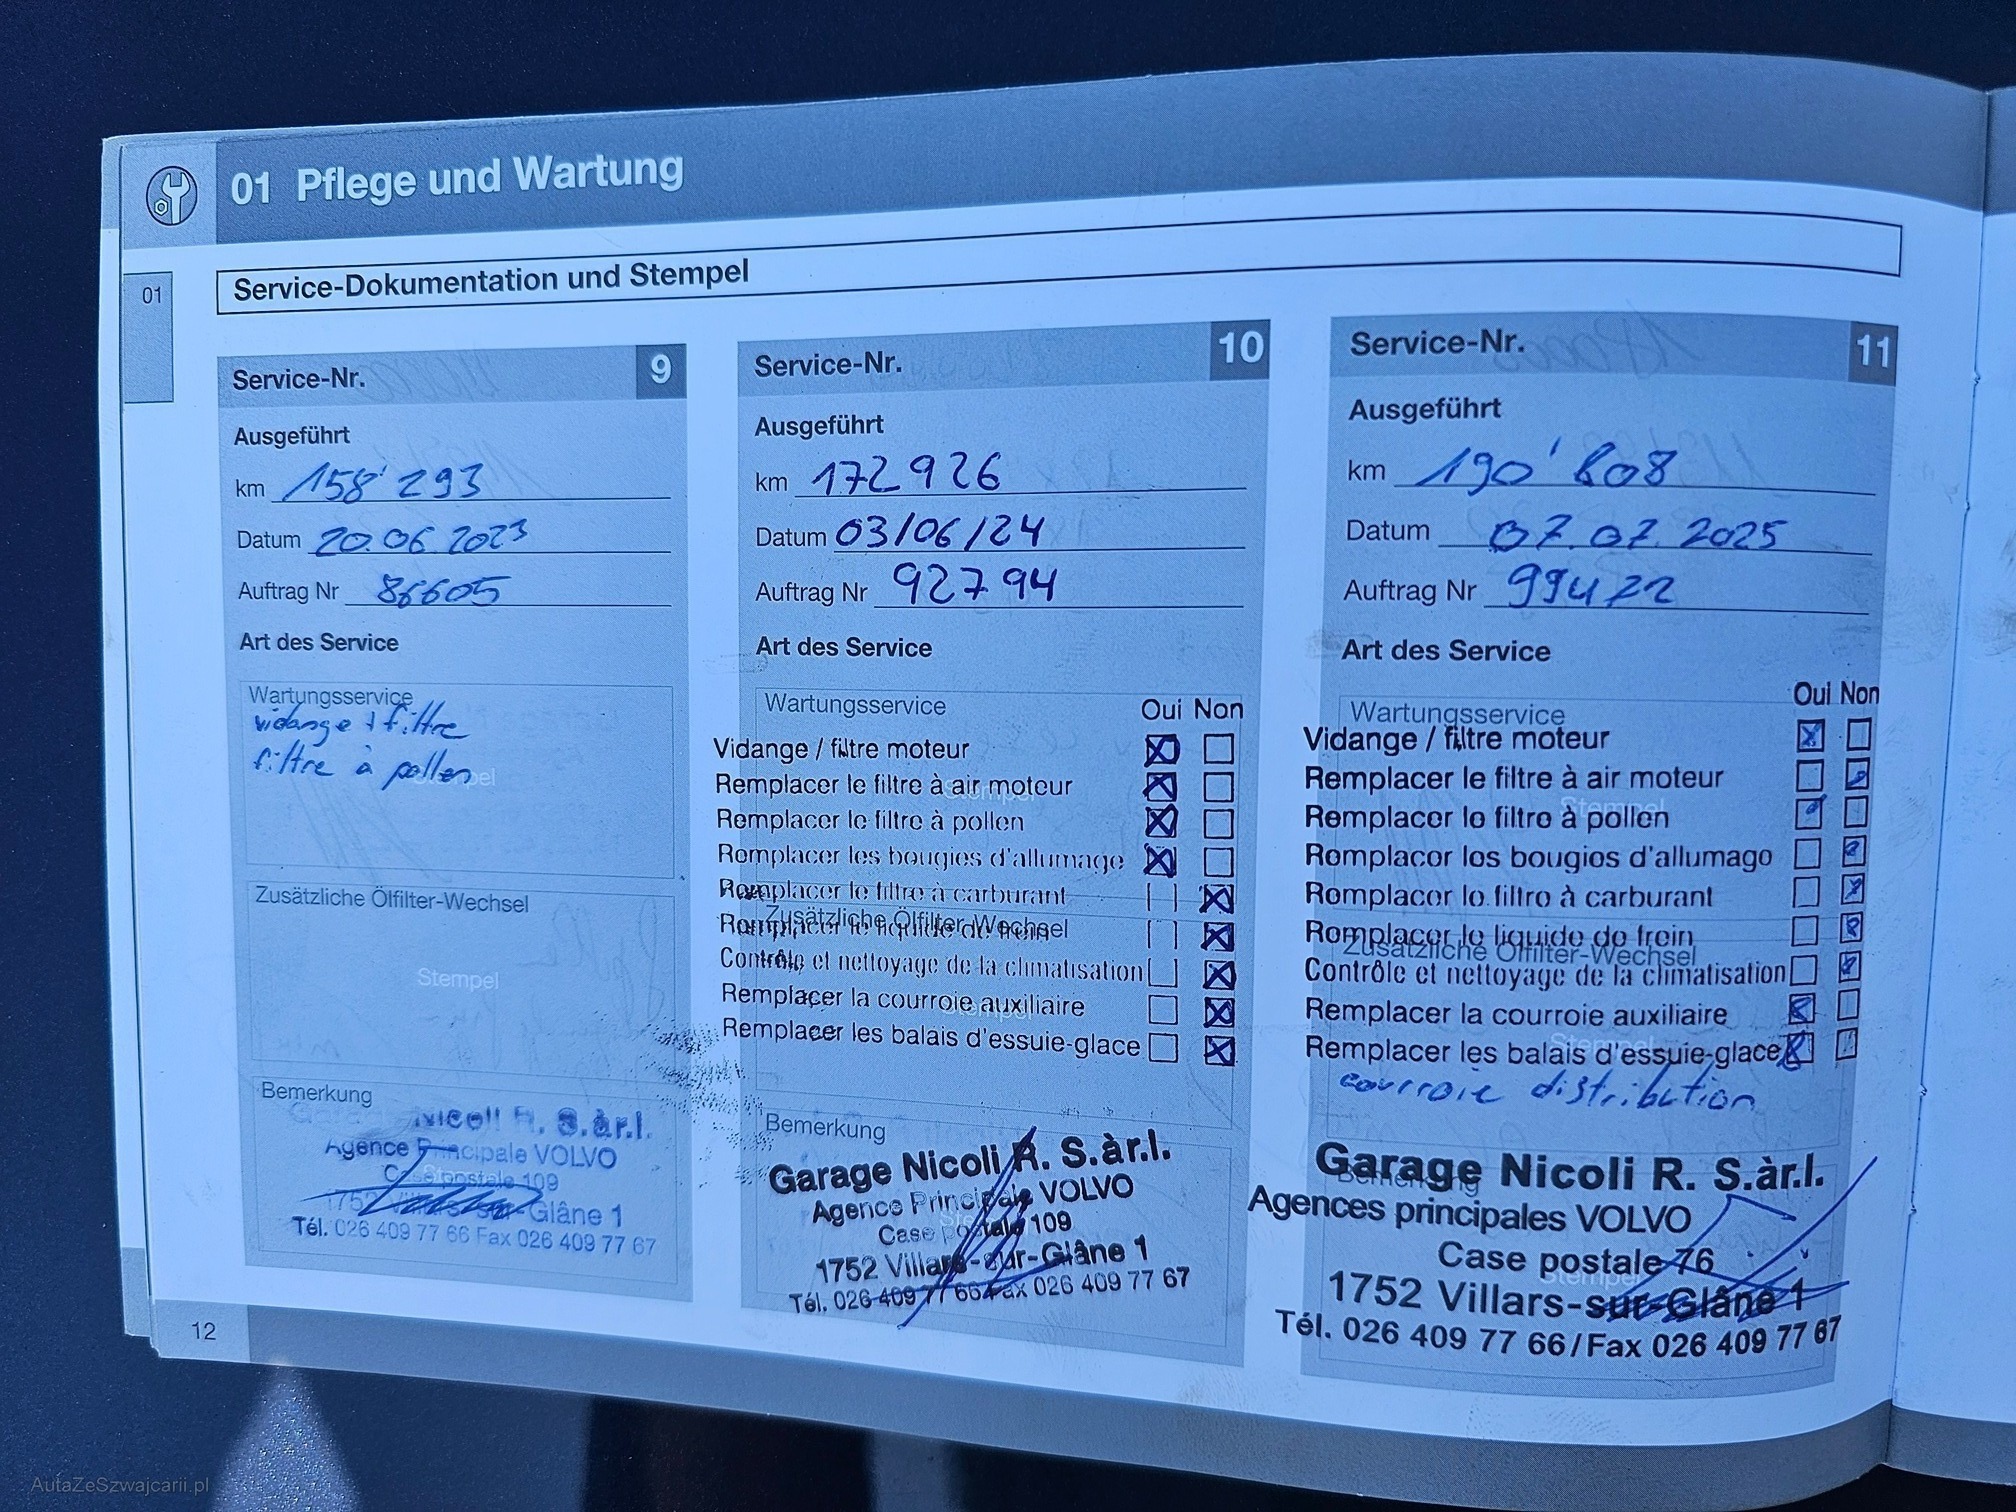 01 Pflege und Wartung
01
Service-Dokumentation und Stempel
Service-Nr. 9
Ausgeführt
km 158'293
Datum 20.06.2023
Auftrag Nr 86605
Art des Service
Wartungsservice
vidange + filtre
filtre à pollen
Stempel
Zusätzliche Ölfilter-Wechsel
Stempel
Bemerkung
Nicoli R. S.àr.l.
Agence Principale VOLVO
Case postale 109
1752 Villars-sur-Glâne 1
Tél. 026 409 77 66 Fax 026 409 77 67
Service-Nr. 10
Ausgeführt
km 172926
Datum 03/06/24
Auftrag Nr 92794
Art des Service
Wartungsservice
Oui Non
Vidange / filtre moteur
Remplacer le filtre à air moteur
Stempel
Remplacer le filtre à pollen
Remplacer les bougies d'allumage
Remplacer le filtre à carburant
Zusätzliche Ölfilter-Wechsel
Remplacer le liquide de frein
Contrôle et nettoyage de la climatisation
Remplacer la courroie auxiliaire
Stempel
Remplacer les balais d'essuie-glace
Bemerkung
Garage Nicoli R. S.àr.l.
Agence Principale VOLVO
Case postale 109
1752 Villars-sur-Glâne 1
Tél. 026 409 77 66 Fax 026 409 77 67
Service-Nr. 11
Ausgeführt
km 190'808
Datum 07.07.2025
Auftrag Nr 99472
Art des Service
Wartungsservice
Oui Non
Vidange / filtre moteur
Remplacer le filtre à air moteur
Stempel
Remplacer le filtre à pollen
Remplacer les bougies d'allumage
Remplacer le filtre à carburant
Remplacer le liquide de frein
Zusätzliche Ölfilter-Wechsel
Contrôle et nettoyage de la climatisation
Remplacer la courroie auxiliaire
Stempel
Remplacer les balais d'essuie-glace
courroie distribution
Garage Nicoli R. S.àr.l.
Bemerkung
Agences principales VOLVO
Case postale 76
Stempel
1752 Villars-sur-Glâne 1
Tél. 026 409 77 66/Fax 026 409 77 67
12
AutaZeSzwajcarii.pl